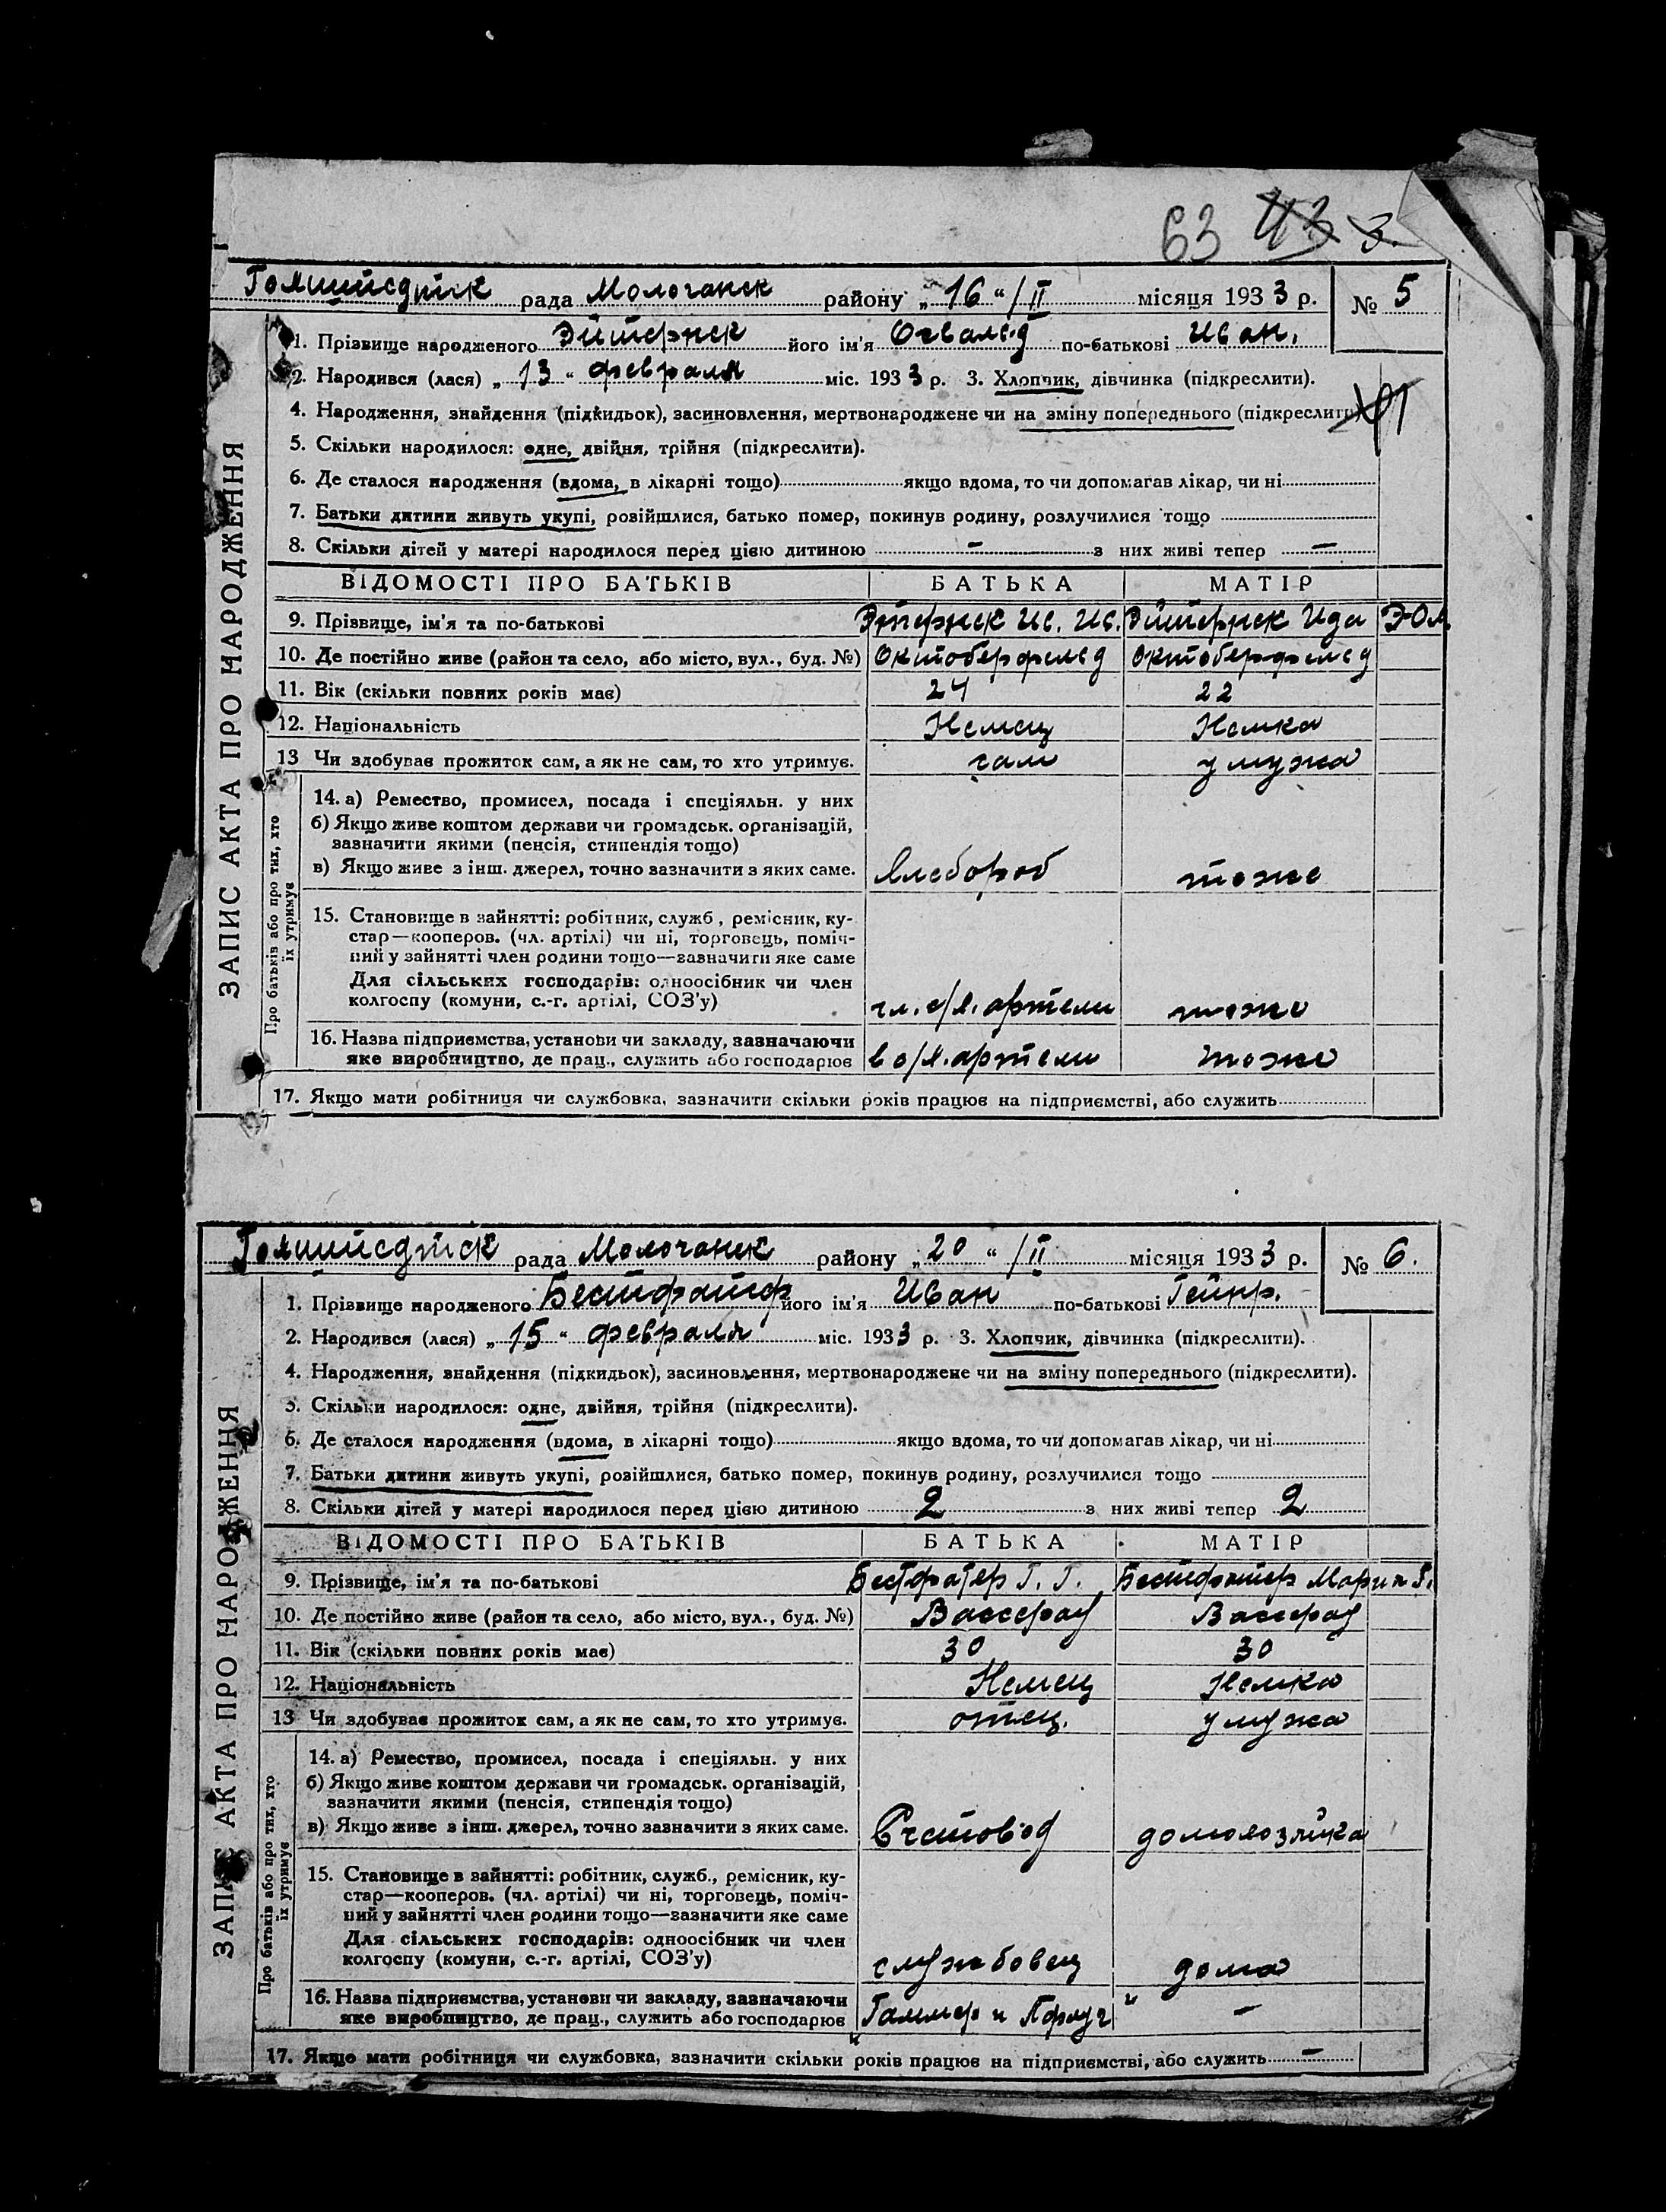 63 43 3.
рада Молочанск району „ 16 “ / II місяця 193 3 р. № 5
1. Прізвище народженого його ім'я Освальд по-батькові Иван.
2. Народився (лася) „ 13 “ февраля міс. 193 3 р. 3. Хлопчик, дівчинка (підкреслити).
4. Народження, знайдення (підкидьок), засиновлення, мертвонароджене чи на зміну попереднього (підкреслити)
5. Скільки народилося: одне, двійня, трійня (підкреслити).
6. Де сталося народження (вдома, в лікарні тощо) якщо вдома, то чи допомагав лікар, чи ні
7. Батьки дитини живуть укупі, розійшлися, батько помер, покинув родину, розлучилися тощо
8. Скільки дітей у матері народилося перед цією дитиною — з них живі тепер —
ВІДОМОСТІ ПРО БАТЬКІВ БАТЬКА МАТІР
9. Прізвище, ім'я та по-батькові Ив. Ив. Ида
10. Де постійно живе (район та село, або місто, вул., буд. №) Октоберфельд Октоберфельд
11. Вік (скільки повних років має) 24 22
12. Національність Немец Немка
13 Чи здобуває прожиток сам, а як не сам, то хто утримує. сам у мужа
14. а) Ремество, промисел, посада і спеціяльн. у них
б) Якщо живе коштом держави чи громадськ. організацій,
зазначити якими (пенсія, стипендія тощо)
в) Якщо живе з інш. джерел, точно зазначити з яких саме. Хлебороб тоже
15. Становище в зайнятті: робітник, служб., ремісник, ку-
стар—кооперов. (чл. артілі) чи ні, торговець, поміч-
ний у зайнятті член родини тощо—зазначити яке саме
Для сільських господарів: одноосібник чи член
колгоспу (комуни, с.-г. артілі, СОЗ'у) чл. с/х. артели тоже
16. Назва підприємства, установи чи закладу, зазначаючи
яке виробництво, де прац., служить або господарює в с/х. артели тоже
17. Якщо мати робітниця чи службовка, зазначити скільки років працює на підприємстві, або служить
ЗАПИС АКТА ПРО НАРОДЖЕННЯ
Про батьків або про тих, хто
їх утримує
рада Молочанск району „ 20 “ / II місяця 193 3 р. № 6.
1. Прізвище народженого Бестфатер його ім'я Иван по-батькові Гейнр.
2. Народився (лася) „ 15 “ февраля міс. 193 3 р. 3. Хлопчик, дівчинка (підкреслити).
4. Народження, знайдення (підкидьок), засиновлення, мертвонароджене чи на зміну попереднього (підкреслити).
5. Скільки народилося: одне, двійня, трійня (підкреслити).
6. Де сталося народження (вдома, в лікарні тощо) якщо вдома, то чи допомагав лікар, чи ні
7. Батьки дитини живуть укупі, розійшлися, батько помер, покинув родину, розлучилися тощо
8. Скільки дітей у матері народилося перед цією дитиною 2 з них живі тепер 2
ВІДОМОСТІ ПРО БАТЬКІВ БАТЬКА МАТІР
9. Прізвище, ім'я та по-батькові Бестфатер Г. Г. Бестфатер Мария
10. Де постійно живе (район та село, або місто, вул., буд. №)
11. Вік (скільки повних років має) 30 30
12. Національність Немец Немка
13 Чи здобуває прожиток сам, а як не сам, то хто утримує. отец. у мужа
14. а) Ремество, промисел, посада і спеціяльн. у них
б) Якщо живе коштом держави чи громадськ. організацій,
зазначити якими (пенсія, стипендія тощо)
в) Якщо живе з інш. джерел, точно зазначити з яких саме. Счетовод домохозяйка
15. Становище в зайнятті: робітник, служб., ремісник, ку-
стар—кооперов. (чл. артілі) чи ні, торговець, поміч-
ний у зайнятті член родини тощо—зазначити яке саме
Для сільських господарів: одноосібник чи член
колгоспу (комуни, с.-г. артілі, СОЗ'у) службовец дома
16. Назва підприємства, установи чи закладу, зазначаючи
яке виробництво, де прац., служить або господарює „ Гаммер и Пфлуг “ —
17. Якщо мати робітниця чи службовка, зазначити скільки років працює на підприємстві, або служить —
ЗАПИС АКТА ПРО НАРОДЖЕННЯ
Про батьків або про тих, хто
їх утримує